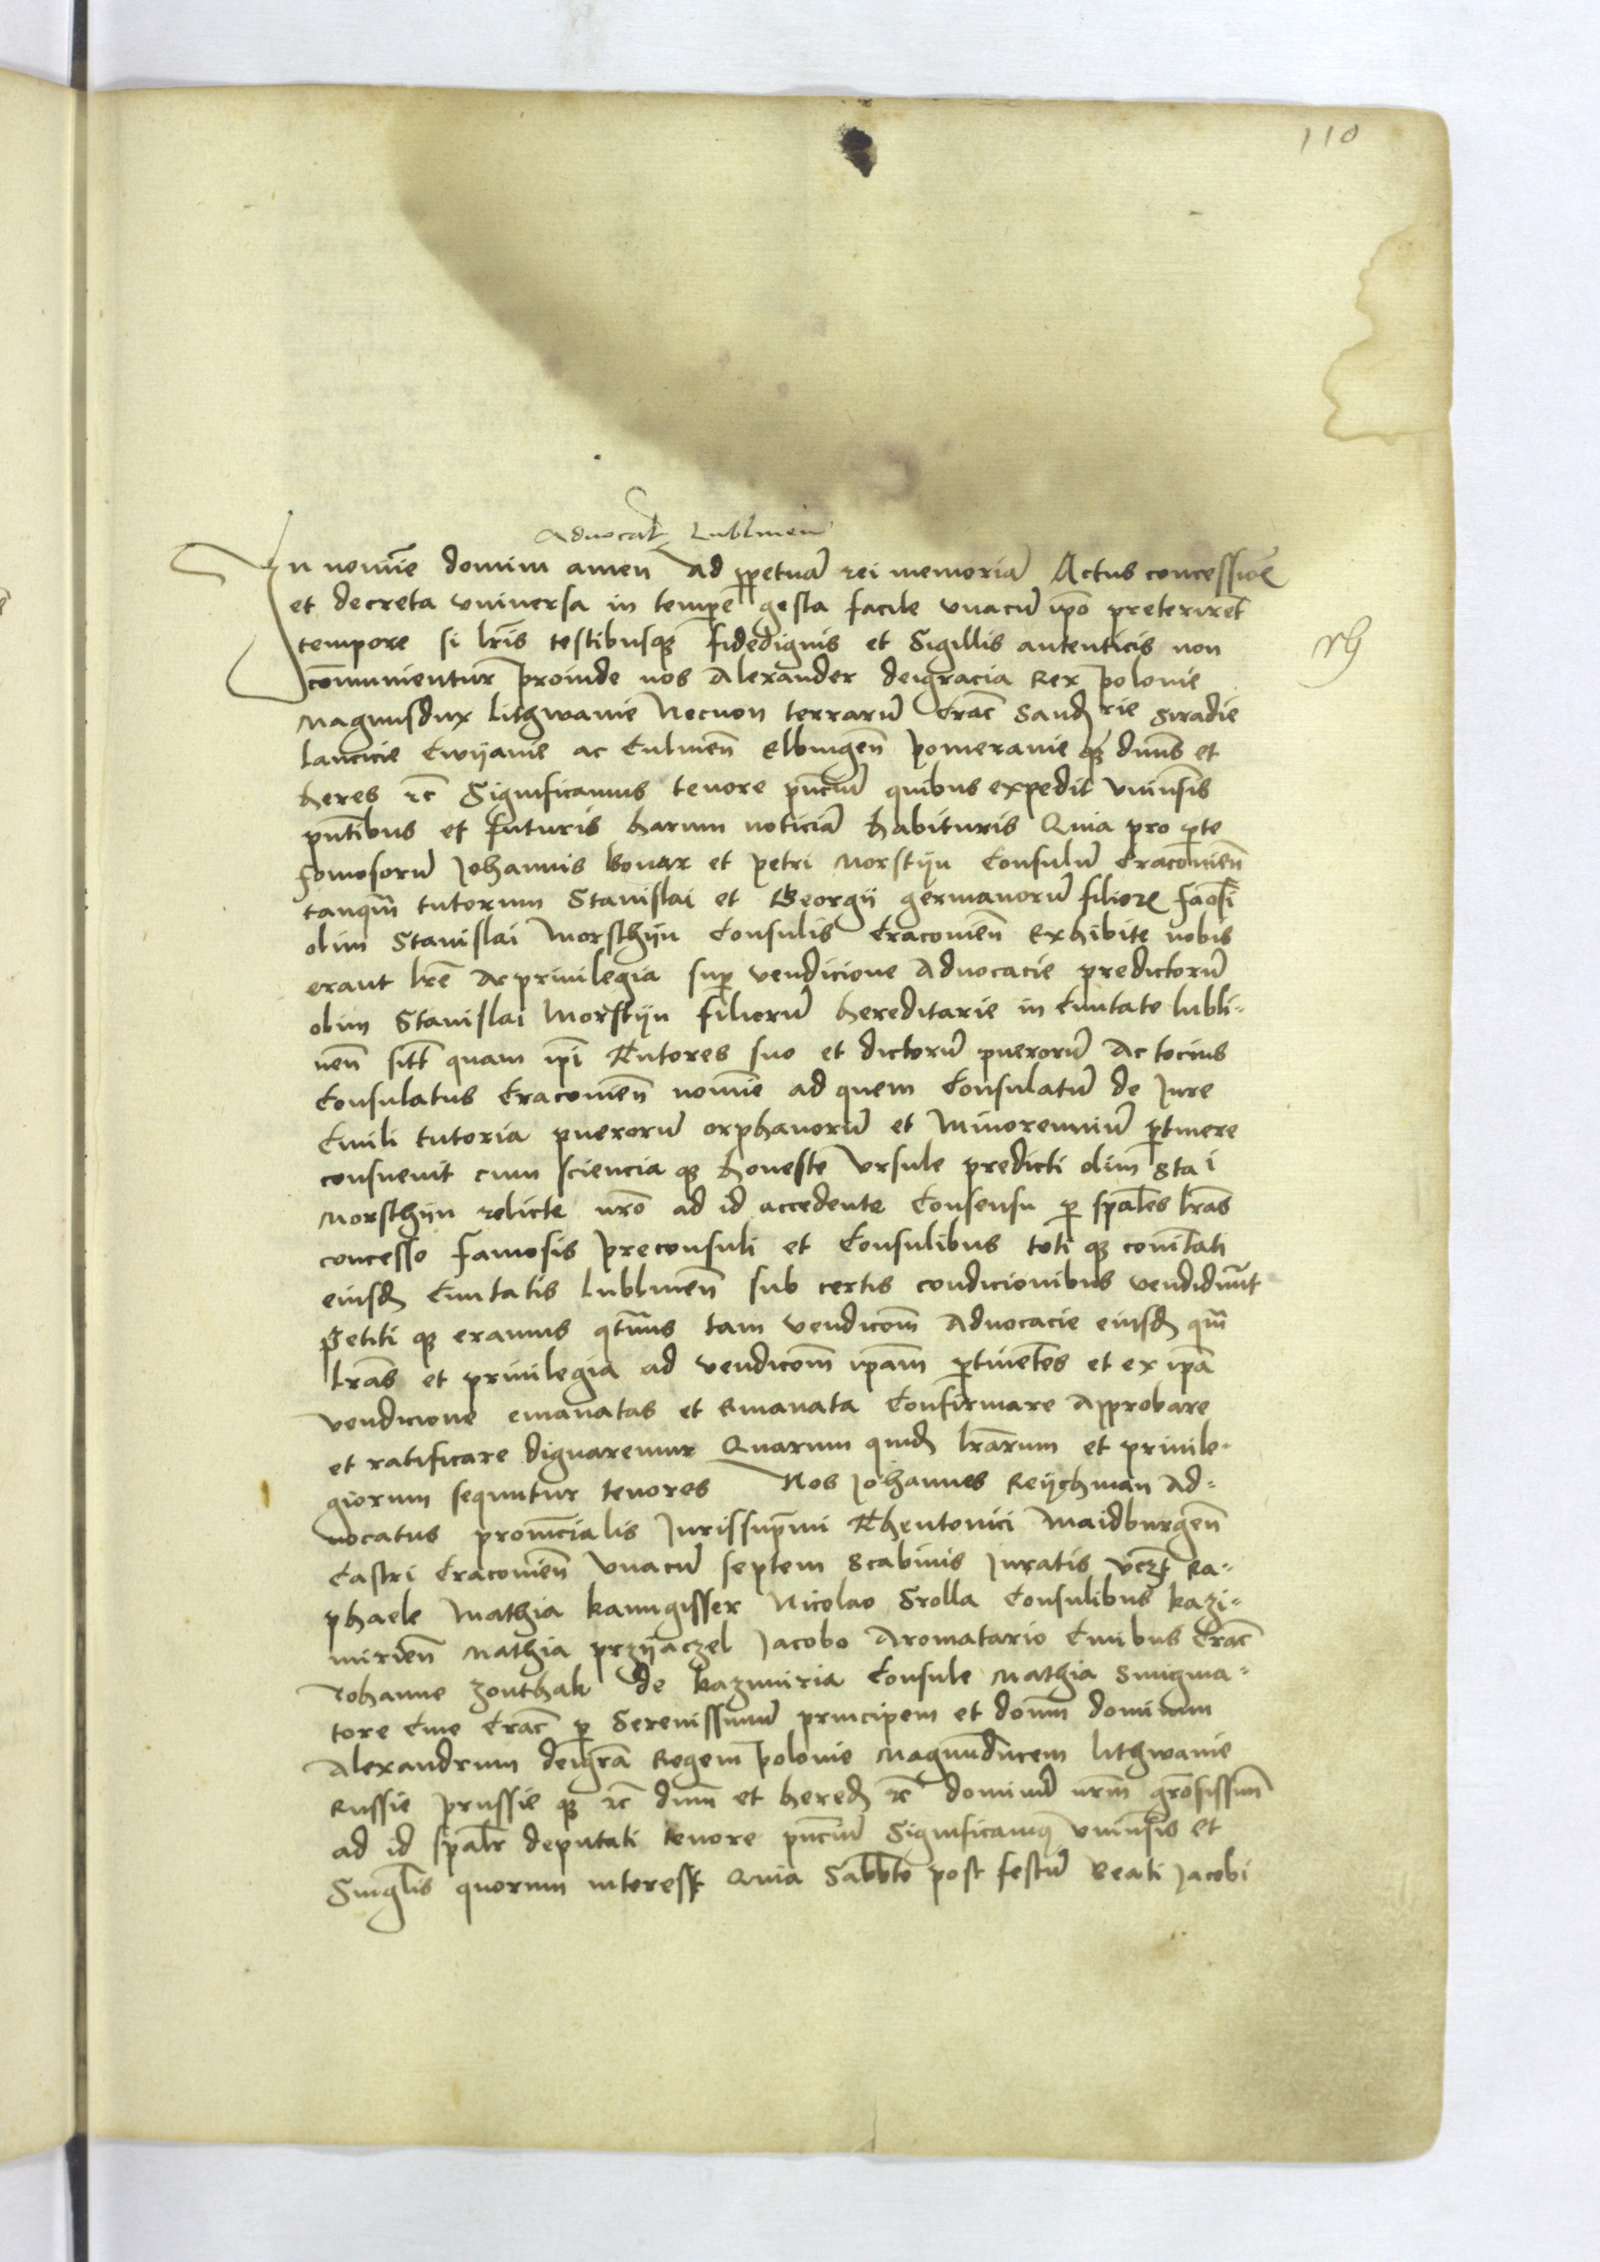 110
Advocat Lublinen
In nomine domini amen Ad ppetuā rei memoriā Actus concessiōe
et decreta vniversa in tempē gesta facile vnacū ipō preterirēt
tempore si lrīs testibusqꝫ fidedignis et Sigillis autenticis non
cōmunientur proinde nos Alexander deigracia Rex polonie
Magnusdux Lithwanie Necnon terrarū Crac̄ Sandꝫ rie Siradie
lancicie Cwyanie ac Culmen̄ Elbingen̄ pomeranie qꝫ dnūs et
heres ꝛc̄ Significamus tenore pn̄ciū quibus expedit vniūsis
pn̄tibus et futuris harum noticiā habituris Quia pro pte
Fomosorū Johannis bonar et petri Morstyn Consulū Cracouien̄
tanqm̄ tutorum Stanislai et Georgii germanorū filioꝝ faōsi
olim Stanislai Morsthyn Consulis Cracouien̄ Exhibite nobis
erant lrē Ac priuilegia sup vendicione Aduocacie predictorū
olim Stanislai Morstyn filiorū hereditarie in Ciuitate lubli-
nen̄ sitē quam ipi Tutores suo et dictorū puerorū Ac tocius
Consulatus Cracouien̄ nomīe ad quem Consulatū de Jure
Ciuili tutoria puerorū orphanorū et Minorenniū ptinere
consueuit cum sciencia qꝫ honeste Vrsule predicti olim Sta i
Morsthyn relicte nrō ad id accedente Consensu p spāles lrās
concesso famosis preconsuli et Consulibus toti qꝫ com̄itati
eiusdꝫ Ciuitatis Lublinen̄ sub certis condicionibus vendiderūt
Petiti qꝫ eramus qtnūs tam vendicōm Aduocacie eiusdꝫ qm̄
lrās et priuilegia ad vendicōm ipām ptinentes et ex ipā
vendicione emanatas et Emanata Confirmare Approbare
et ratificare dignaremur Quarum quidꝫ lrārum et priuile-
giorum sequntur tenores Nos Johannes Reychman Ad-
uocatus prouīncialis Jurissupremi Theutonici Maidburgen̄
Castri Cracouien̄ Vnacū septem Scabinis Juratis vczt Ra-
phaele Mathia kanngisser Nicolao Srolla Consulibus kazi-
mirien̄ Mathia przyaczel Jacobo Aromatario Ciuibus Crac̄
Johanne Zonthak de kazimiria Consule Mathia Smigma-
tore Ciue Crac̄ p Serenissimū principem et domn̄ dominum
Alexandrum deigrā Regem polonie Magnumducem lithwanie
Russie prussie qꝫ ꝛc̄ dnm̄ et heredꝫ ꝛc̄ dominū nrm̄ grōsissim̄
ad id spālr deputati tenore pn̄ciū Significamꝰ vniūsis et
Singlis quorum interest Quia Sabbto post festū Beati Jacobi